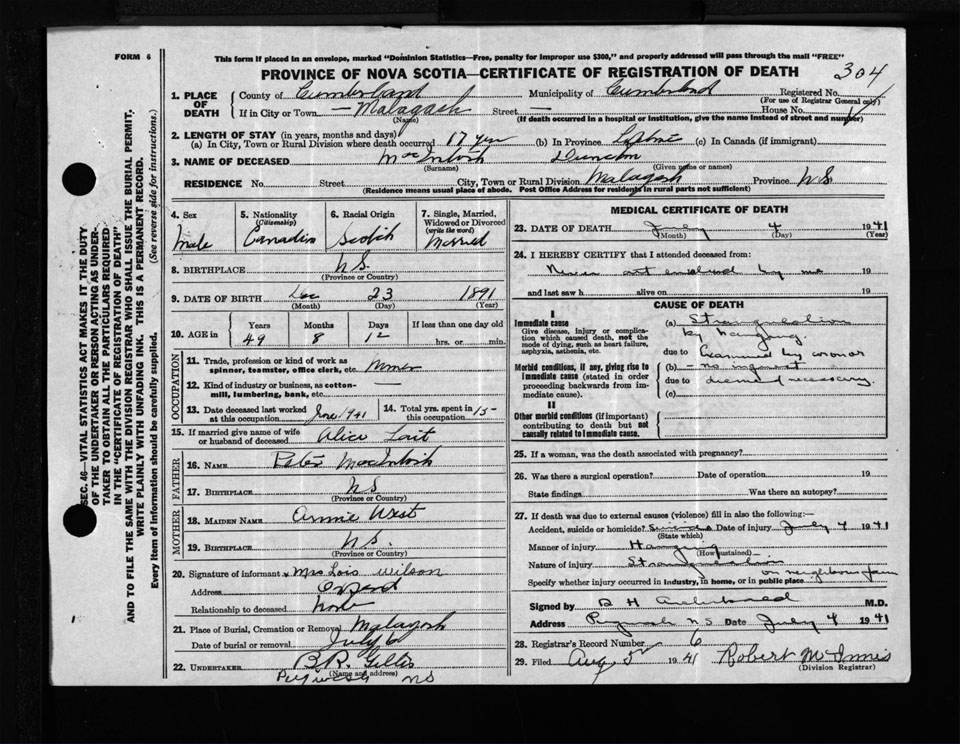 FORM 6
This form if placed in an envelope, marked "Dominion Statistics—Free, penalty for improper use $300," and properly addressed will pass through the mail "FREE"
PROVINCE OF NOVA SCOTIA—CERTIFICATE OF REGISTRATION OF DEATH
304
1. PLACE OF DEATH
County of Cumberland Municipality of Cumberland Registered No.
(For use of Registrar General only)
If in City or Town — Malagash Street — House No.
(Name) (If death occurred in a hospital or institution, give the name instead of street and number)
2. LENGTH OF STAY (in years, months and days)
(a) In City, Town or Rural Division where death occurred 17 yrs (b) In Province Lifetime (c) In Canada (if immigrant)
3. NAME OF DECEASED MacIntosh Duncan
(Surname) (Given name or names)
RESIDENCE No. Street City, Town or Rural Division Malagash Province N.S.
(Residence means usual place of abode. Post Office Address for residents in rural parts not sufficient)
4. Sex
Male
5. Nationality
(Citizenship)
Canadian
6. Racial Origin
Scotch
7. Single, Married, Widowed or Divorced
(write the word)
Married
8. BIRTHPLACE N.S.
(Province or Country)
9. DATE OF BIRTH Dec 23 1891
(Month) (Day) (Year)
10. AGE in
Years Months Days If less than one day old
49 8 12 hrs. or min.
OCCUPATION
11. Trade, profession or kind of work as spinner, teamster, office clerk, etc. Miner
12. Kind of industry or business, as cotton-mill, lumbering, bank, etc.
13. Date deceased last worked at this occupation June 1941
14. Total yrs. spent in this occupation 15
15. If married give name of wife or husband of deceased Alice
FATHER
16. NAME Peter MacIntosh
17. BIRTHPLACE N.S.
(Province or Country)
MOTHER
18. MAIDEN NAME Annie West
19. BIRTHPLACE N.S.
(Province or Country)
20. Signature of informant x Mrs Lois Wilson
Address Oxford
Relationship to deceased None
21. Place of Burial, Cremation or Removal Malagash
Date of burial or removal July 6
22. UNDERTAKER B.R. Gillis
(Name and address)
Pugwash NS
MEDICAL CERTIFICATE OF DEATH
23. DATE OF DEATH July 4 1941
(Month) (Day) (Year)
24. I HEREBY CERTIFY that I attended deceased from:
Never by me 19
and last saw h alive on 19
CAUSE OF DEATH
I
Immediate cause
Give disease, injury or complication which caused death, not the mode of dying, such as heart failure, asphyxia, asthenia, etc.
(a) Strangulation
by hanging
due to Examined by coroner
Morbid conditions, if any, giving rise to immediate cause (stated in order proceeding backwards from immediate cause).
(b) — no inquest
due to deemed necessary.
(c)
II
Other morbid conditions (if important) contributing to death but not causally related to immediate cause.
25. If a woman, was the death associated with pregnancy?
26. Was there a surgical operation? Date of operation 19
State findings Was there an autopsy?
27. If death was due to external causes (violence) fill in also the following:—
Accident, suicide or homicide? Suicide Date of injury July 4 1941
(State which)
Manner of injury Hanging
(How sustained)
Nature of injury Strangulation
on neighbour farm
Specify whether injury occurred in industry, in home, or in public place
Signed by M.D.
Address Pugwash NS Date July 4 1941
28. Registrar's Record Number 6
29. Filed Aug 5 1941 Robert McInnis
(Division Registrar)
SEC. 46—VITAL STATISTICS ACT MAKES IT THE DUTY
OF THE UNDERTAKER OR PERSON ACTING AS UNDER-
TAKER TO OBTAIN ALL THE PARTICULARS REQUIRED
IN THE "CERTIFICATE OF REGISTRATION OF DEATH"
AND TO FILE THE SAME WITH THE DIVISION REGISTRAR WHO SHALL ISSUE THE BURIAL PERMIT.
WRITE PLAINLY WITH UNFADING INK. THIS IS A PERMANENT RECORD.
Every item of information should be carefully supplied. (See reverse side for instructions.)